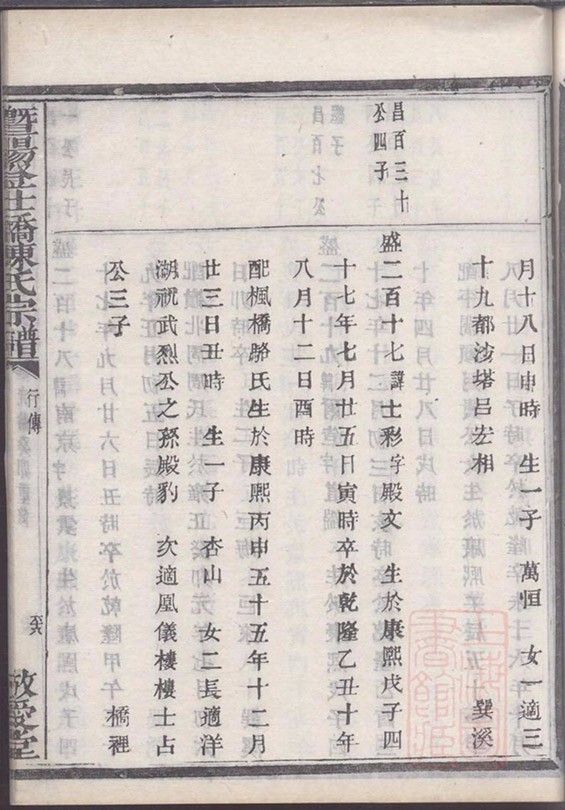 月十八日申時　生一子　萬恒　女一適三
十九都沙塔呂宏相　巽溪
昌百三十
公四子
盛二百十七諱士彩字殿文　生於康熙戊子四
十七年七月廿五日寅時卒於乾隆乙丑十年
八月十二日酉時
配楓橋駱氏生於康熙丙申五十五年十二月
廿三日丑時　生一子　杏山　女二長適洋
湖祝武烈公之孫殿豹　次適凰儀樓樓士占
公三子　橋裡
暨陽崟仕橋陳氏宗譜
行傳
敬愛堂